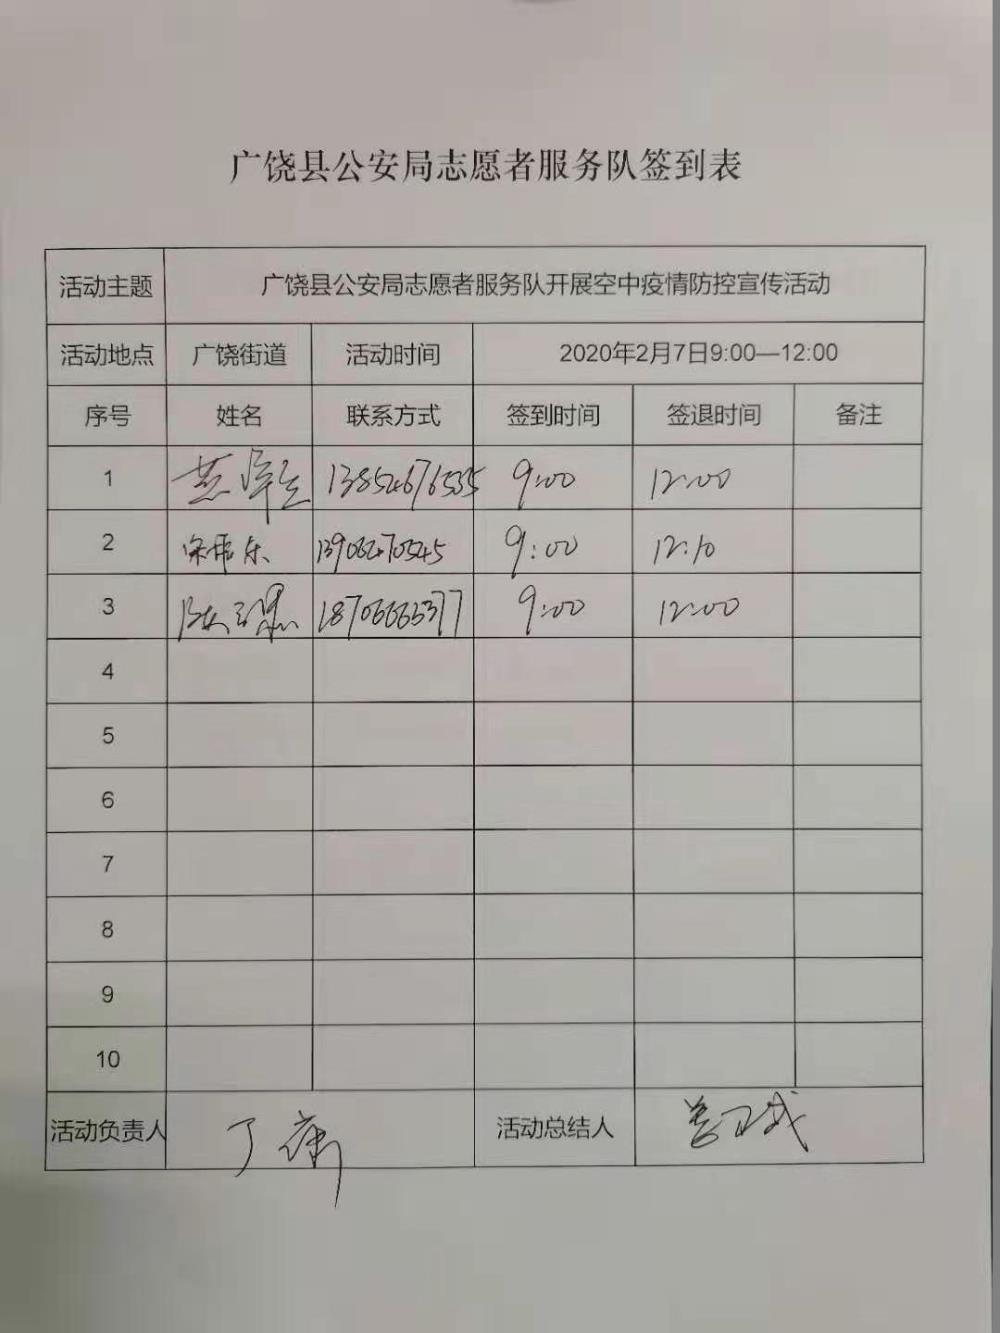 广饶县公安局志愿者服务队签到表
活动主题 广饶县公安局志愿者服务队开展空中疫情防控宣传活动
活动地点 广饶街道 活动时间 2020年2月7日9:00—12:00
序号 姓名 联系方式 签到时间 签退时间 备注
1 13854676535 9:00 12:00
2 9:00 12:10
3 18706665377 9:00 12:00
4
5
6
7
8
9
10
活动负责人 丁 活动总结人